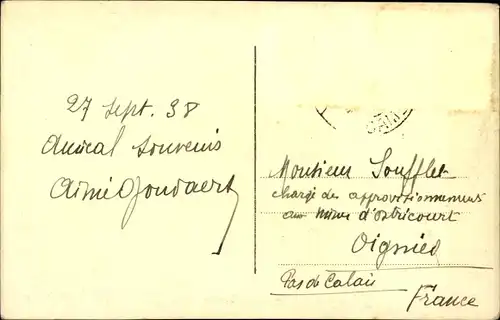 27 Sept. 38
Amical Souvenir
Aimé
Monsieur Soufflet
chargé des approvisionnements
aux mines d'Ostricourt
Oignies
Pas de Calais
France